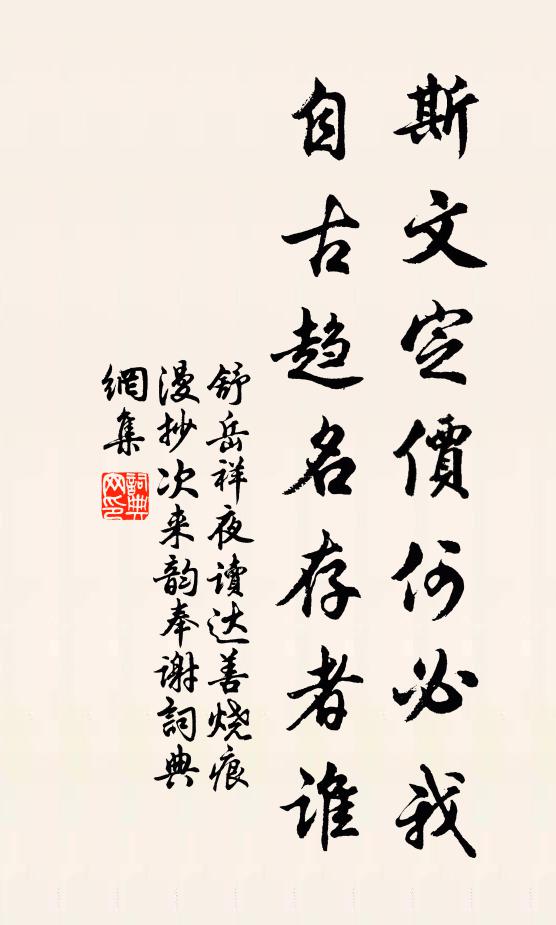 斯文定價何必我
自古趨名存者誰
舒岳祥夜讀达善燒痕
漫抄次来韵奉謝詞典
網集
詞典
网印